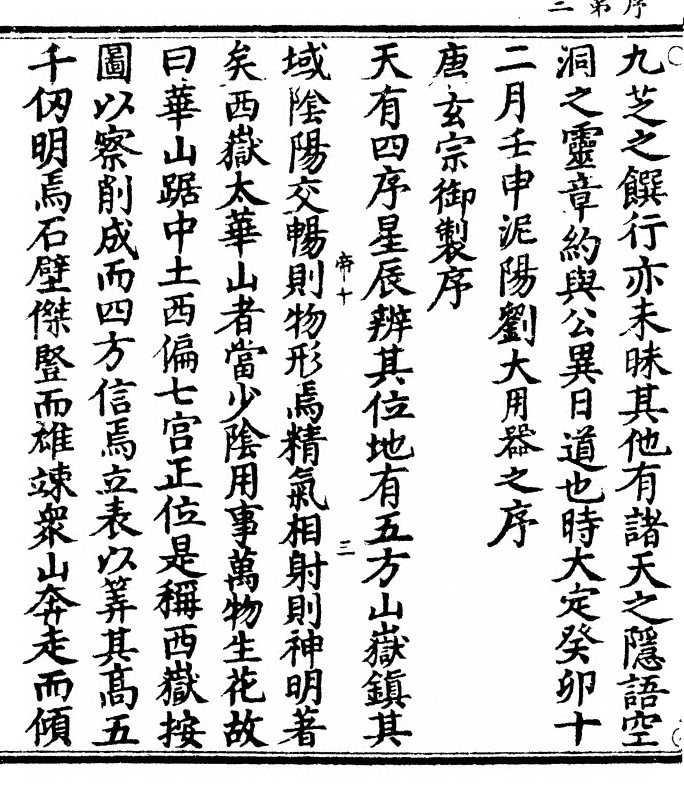 序第二
九芝之饌行亦未昧其他有諸天之隱語空
洞之靈章約與公異日道也時大定癸卯十
二月壬申泥陽劉大用器之序
唐玄宗御製序
天有四序星辰辨其位地有五方山嶽鎮其
帝十 三
域陰陽交暢則物形焉精氣相射則神明著
矣西嶽太華山者當少陰用事萬物生花故
曰華山踞中土西偏七宫正位是稱西嶽按
圖以察削成而四方信焉立表以筭其高五
千仭明焉石壁傑豎而雄竦衆山奔走而傾